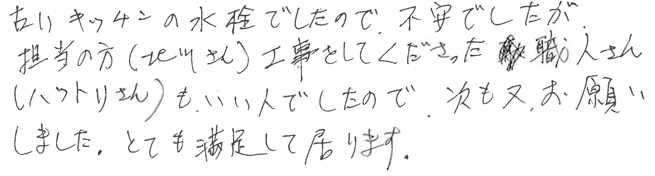 古いキッチンの水栓でしたので、不安でしたが、
担当の方(北川さん)工事をしてくださった職人さん
(ハットリさん)も、いい人でしたので、次も又、お願い
しました。とても満足して居ります。